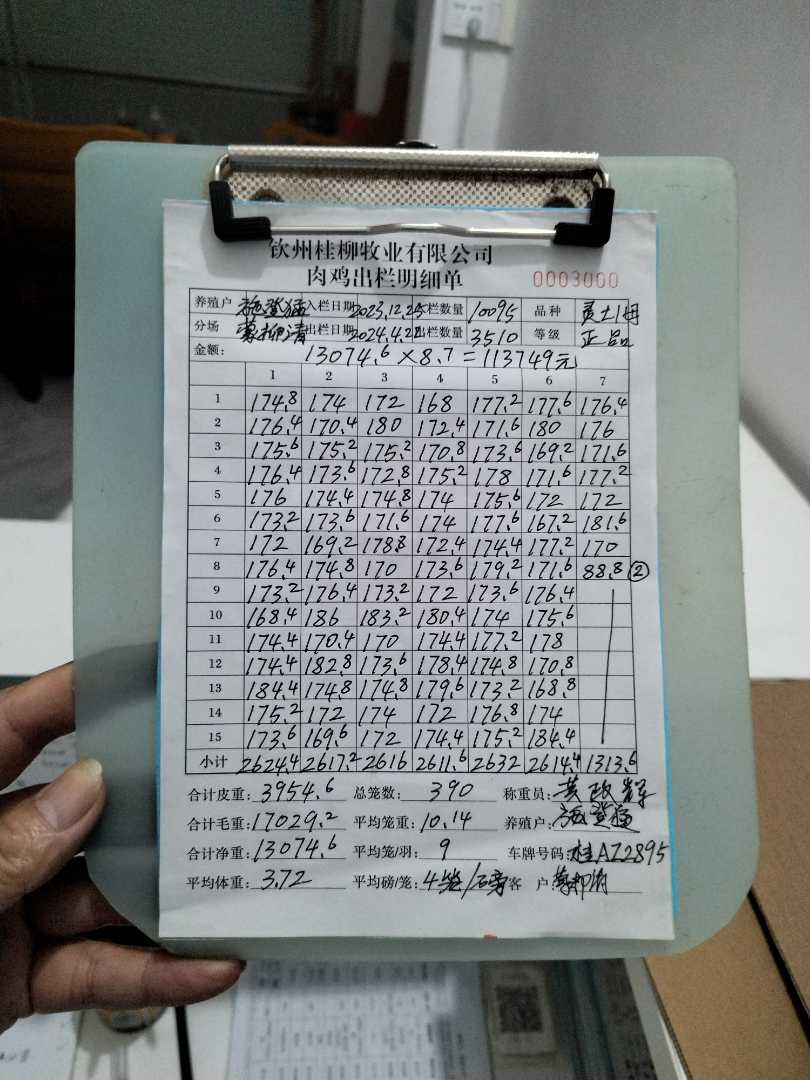 钦州桂柳牧业有限公司
肉鸡出栏明细单 0003000
养殖户 施登猛 入栏日期 2023.12.25 栏数量 10095 品种 灵土1母
分场 蒙柳清 出栏日期 2024.4.22 出栏数量 3510 等级 正品
金额: 13074.6×8.7=113749元
1 2 3 4 5 6 7
1 174.8 174 172 168 177.2 177.6 176.4
2 176.4 170.4 180 172.4 171.6 180 176
3 175.6 175.2 175.2 170.8 173.6 169.2 171.6
4 176.4 173.6 172.8 175.2 178 171.6 177.2
5 176 174.4 174.8 174 175.6 172 172
6 173.2 173.6 171.6 174 177.6 167.2 181.6
7 172 169.2 178.8 172.4 174.4 177.2 170
8 176.4 174.8 170 173.6 179.2 171.6 88.8 ②
9 173.2 176.4 173.2 172 173.6 176.4
10 168.4 186 183.2 180.4 174 175.6
11 174.4 170.4 170 174.4 177.2 178
12 174.4 182.8 173.6 178.4 174.8 170.8
13 184.4 174.8 174.8 179.6 173.2 168.8
14 175.2 172 174 172 176.8 174
15 173.6 169.6 172 174.4 175.2 184.4
小计 2624.4 2617.2 2616 2611.6 2632 2614.4 1313.6
合计皮重: 3954.6 总笼数: 390 称重员: 黄
合计毛重: 17029.2 平均笼重: 10.14 养殖户: 施登猛
合计净重: 13074.6 平均笼/羽: 9 车牌号码: 桂AZ2895
平均体重: 3.72 平均磅/笼: 4笼/磅 客户